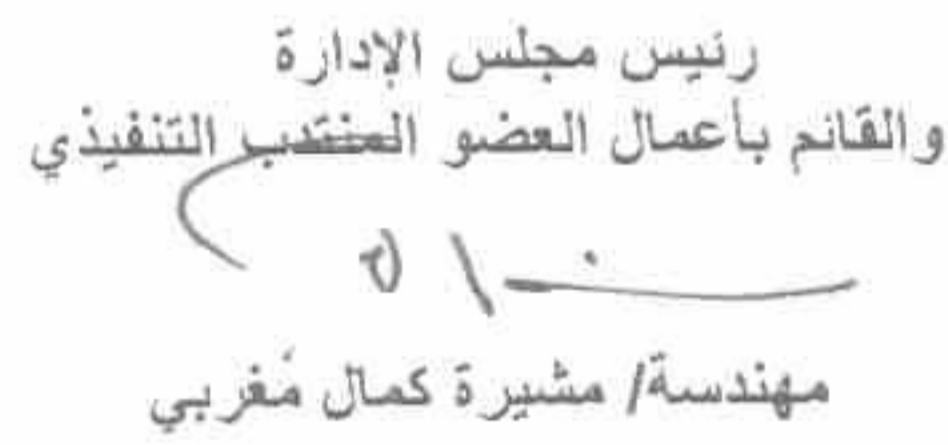 رئيس مجلس الإدارة
والقائم بأعمال العضو المنتدب التنفيذي
مهندسة/ مشيرة كمال مغربي